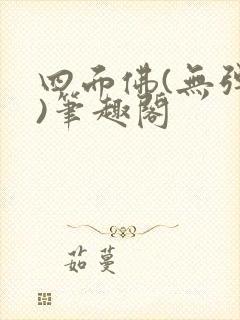 四面佛(無彈
)筆趣閣
茹蔓